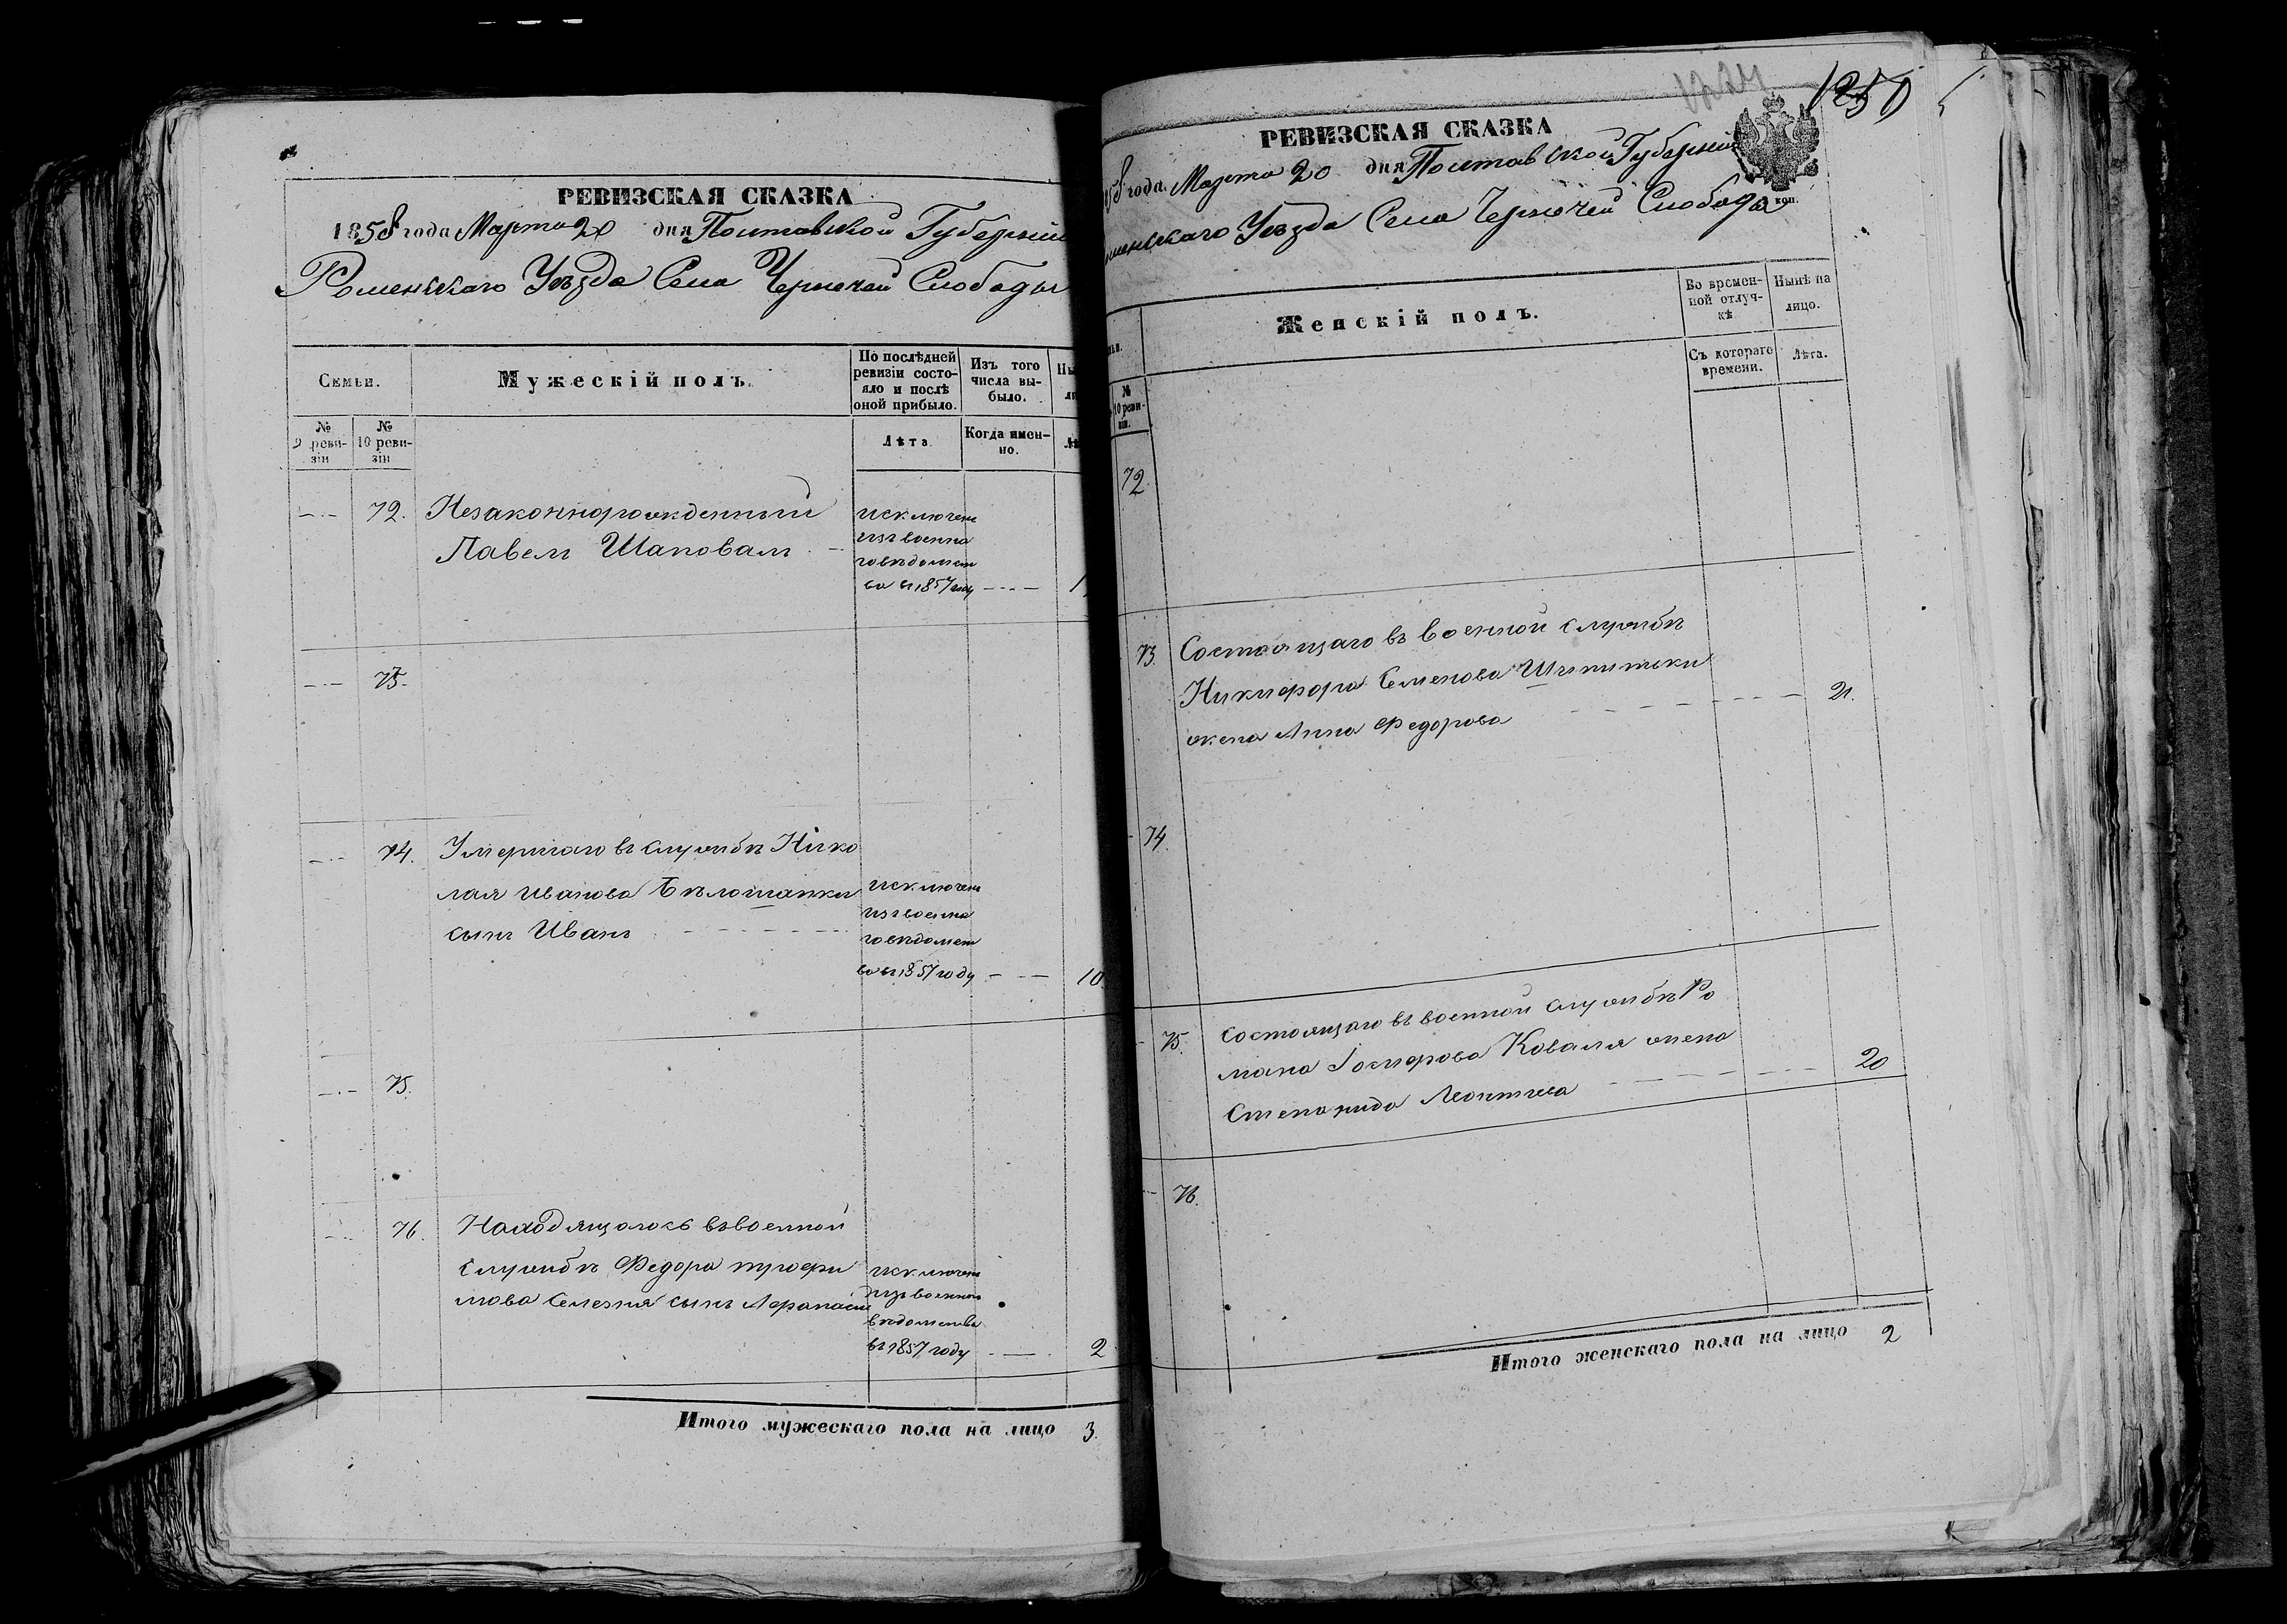 РЕВИЗСКАЯ СКАЗКА
1858 года Марта 20 дня Полтавской Губерніи
Роменскаго Уѣзда Села Чернечей Слободы
Семьи.
Мужескій полъ.
По послѣдней ревизіи состояло и послѣ оной прибыло.
Изъ того числа выбыло.
№ 9 ревизіи
№ 10 ревизіи
Лѣта.
Когда именно.
72. Незаконнорожденный
Павелъ Шаповалъ
исключенъ
изъ военна
го вѣдомст
ва въ 1857 году
73.
74. Умершаго въ службѣ Нико
лая Иванова Бѣлошапки
сынъ Иванъ
исключенъ
изъ военна
го вѣдомст
ва въ 1857 году 10.
75.
76. Находящагося въ военной
службѣ Федора
мова Селезня сынъ Афанасій
исключенъ
изъ военнаго
вѣдомства
въ 1857 году 2
Итого мужескаго пола на лицо 3.
1250
РЕВИЗСКАЯ СКАЗКА
858 года Марта 20 дня Полтавской Губерніи
менскаго Уѣзда Села Чернечей Слободы
коп.
Женскій полъ.
Во временной отлучкѣ
Нынѣ на лицо.
№ 10 ревизіи.
Съ котораго времени.
Лѣта.
72.
73. Состоящаго въ военной службѣ
Никифора Семенова Шпитьки
жена Анна Федорова 21.
74.
75. Состоящаго въ военной службѣ Ро
мана Коваля жена
Степанида Леонтьева 20
76.
Итого женскаго пола на лицо 2